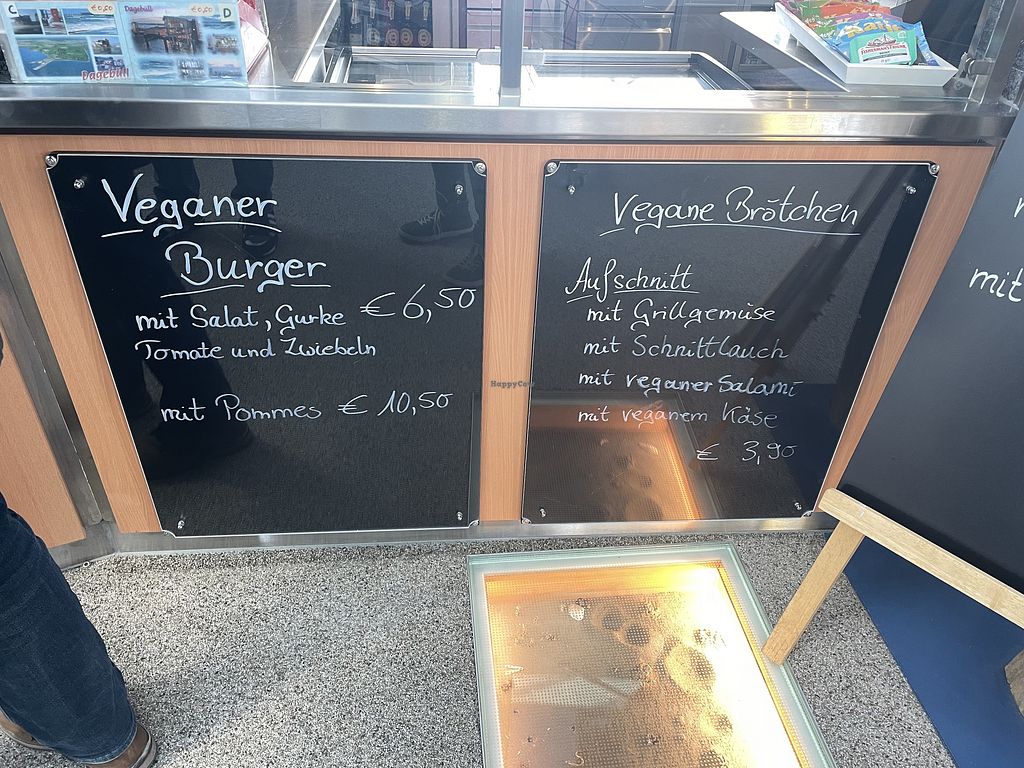 C
€ 0,50
Dagebüll
Dagebüll
€ 0,50
D
FISHERMAN'S FRIEND
Veganer
Burger
mit Salat, Gurke € 6,50
Tomate und Zwiebeln
mit Pommes € 10,50
Vegane Brötchen
Aufschnitt
mit Grillgemüse
mit Schnittlauch
mit veganer Salami
mit veganem Käse
€ 3,90
mit
HappyCow